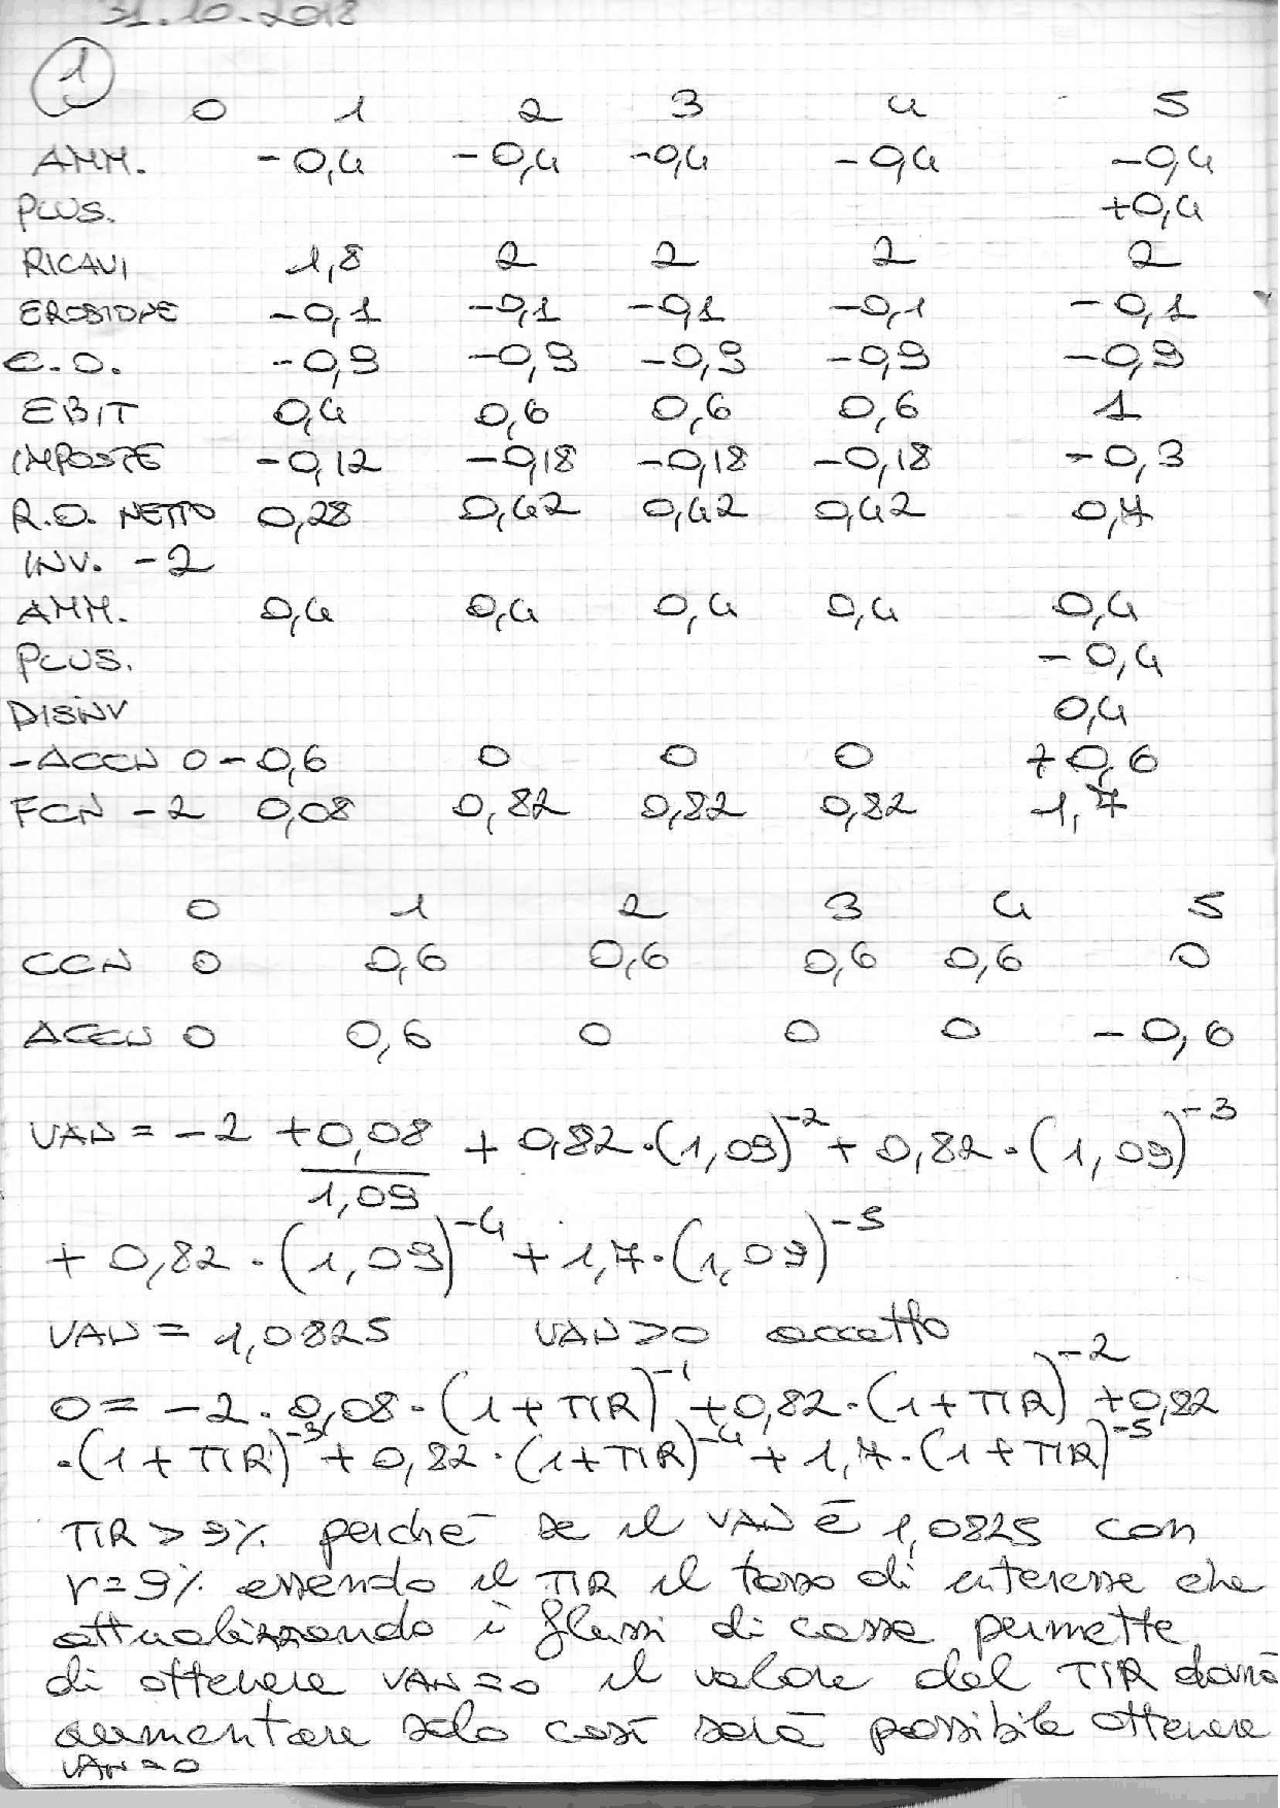 31.10.2018
1
0 1 2 3 4 5
AMM. -0,4 -0,4 -0,4 -0,4 -0,4
PLUS. +0,4
RICAVI 1,8 2 2 2 2
EROSIONE -0,1 -0,1 -0,1 -0,1 -0,1
C.O. -0,9 -0,9 -0,9 -0,9 -0,9
EBIT 0,4 0,6 0,6 0,6 1
IMPOSTE -0,12 -0,18 -0,18 -0,18 -0,3
R.O. NETTO 0,28 0,42 0,42 0,42 0,7
INV. -2
AMM. 0,4 0,4 0,4 0,4 0,4
PLUS. -0,4
DISINV 0,4
-ΔCCN 0 -0,6 0 0 0 +0,6
FCN -2 0,08 0,82 0,82 0,82 1,7
0 1 2 3 4 5
CCN 0 0,6 0,6 0,6 0,6 0
ΔCCN 0 0,6 0 0 0 -0,6
VAN = -2 +0,08/1,09 + 0,82·(1,09)^-2 + 0,82·(1,09)^-3
+ 0,82·(1,09)^-4 + 1,7·(1,09)^-5
VAN = 1,0825 VAN>0 accetto
0 = -2·0,08·(1+TIR)^-1 +0,82·(1+TIR)^-2 +0,82
·(1+TIR)^-3 + 0,82·(1+TIR)^-4 + 1,7·(1+TIR)^-5
TIR > 9% perchē se il VAN ē 1,0825 con
r=9% essendo il TIR il tasso di interesse che
attualizzando i flussi di cassa permette
di ottenere VAN=0 il valore del TIR dovrà
aumentare solo così sarà possibile ottenere
VAN=0